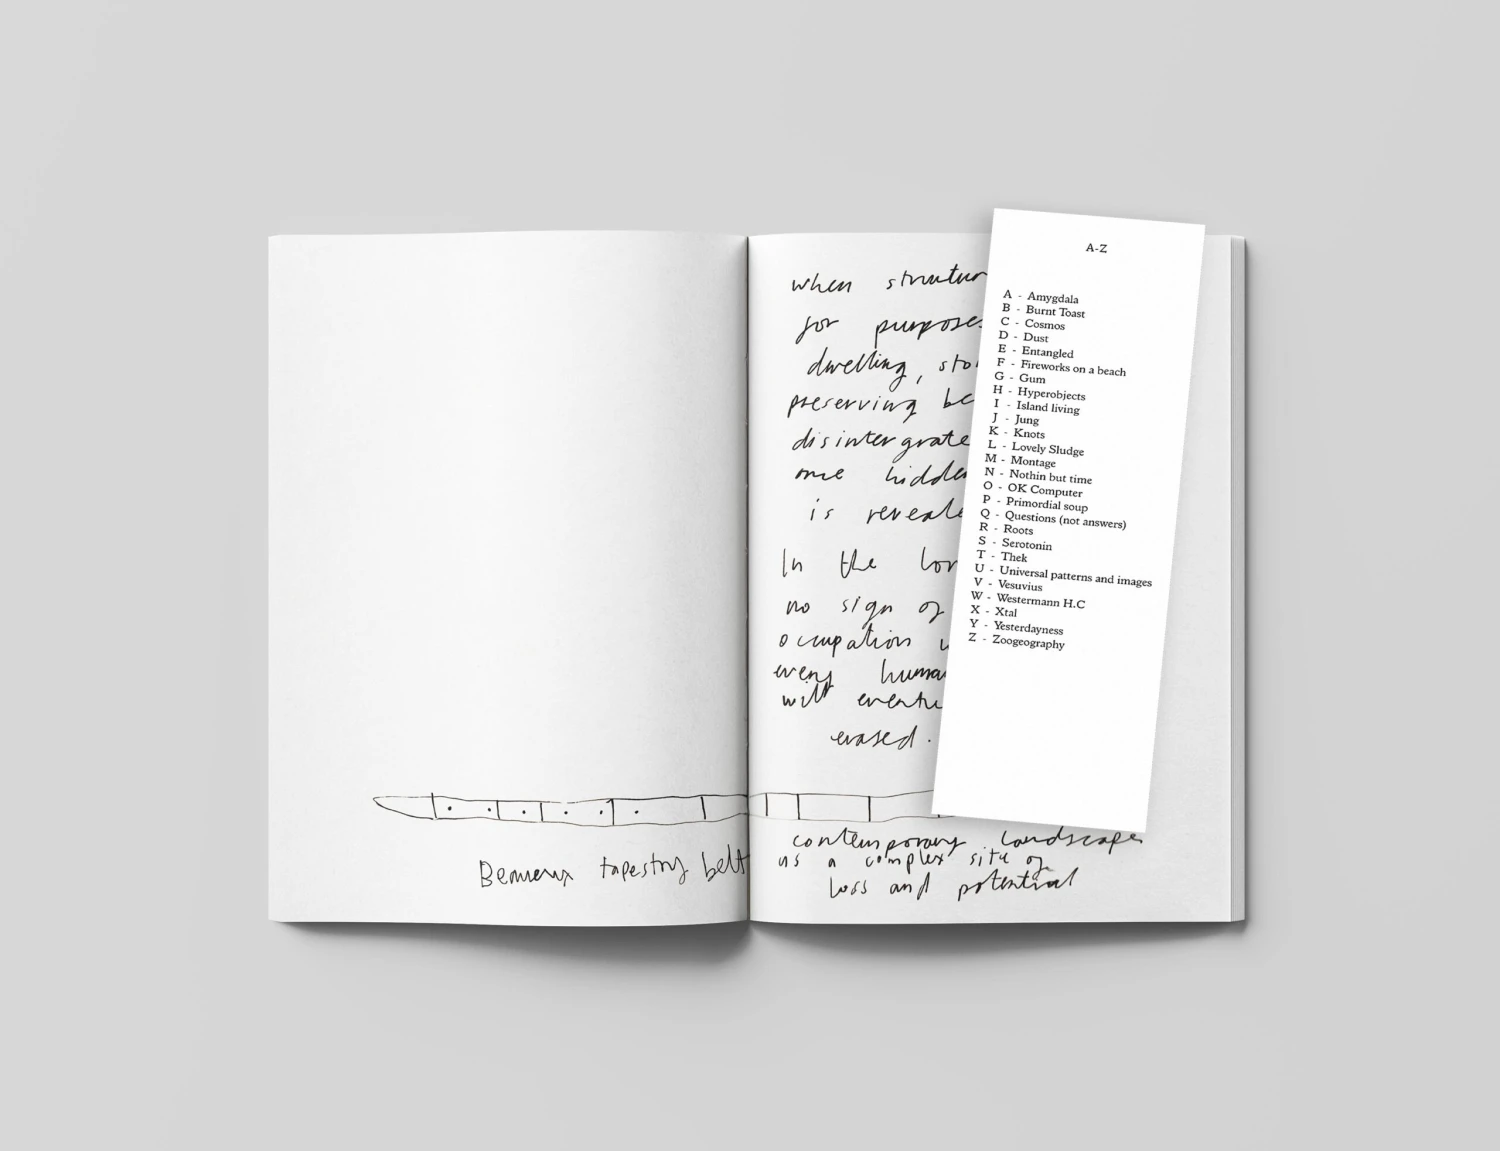 when
for purposes
dwelling,
preserving
disintergrate
once hidden
is
In the
no sign of
occupation
every
will
erased.
tapestry belt
contemporary landscapes
as a complex site of
loss and potential
A-Z
A - Amygdala
B - Burnt Toast
C - Cosmos
D - Dust
E - Entangled
F - Fireworks on a beach
G - Gum
H - Hyperobjects
I - Island living
J - Jung
K - Knots
L - Lovely Sludge
M - Montage
N - Nothin but time
O - OK Computer
P - Primordial soup
Q - Questions (not answers)
R - Roots
S - Serotonin
T - Thek
U - Universal patterns and images
V - Vesuvius
W - Westermann H.C
X - Xtal
Y - Yesterdayness
Z - Zoogeography